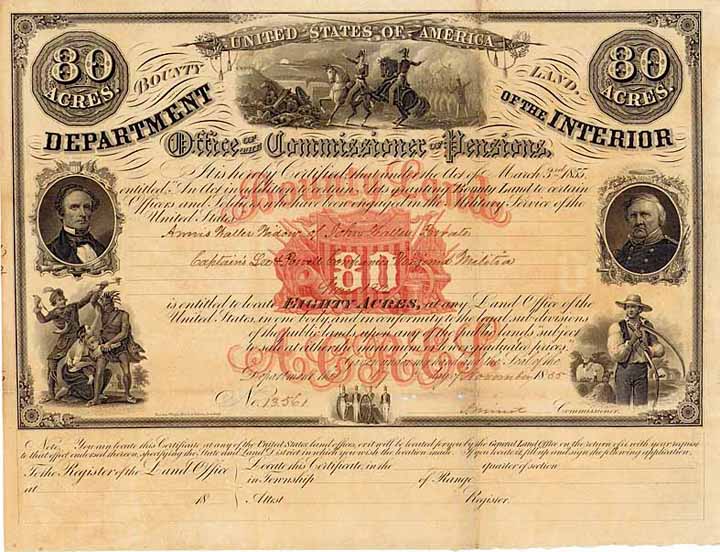 UNITED STATES OF AMERICA
80 ACRES.
BOUNTY LAND.
80 ACRES.
DEPARTMENT OF THE INTERIOR
Office OF THE Commissioner OF Pensions,
It is hereby Certified the Act of March 3rd 1855,
entitled, "An Act in Bounty Land to certain
Officers and Soldiers who have been engaged in the Military Service of the
United States
Annis Waller Widow of John Waller, Private
Captains Lee & Powell Companies Virginia Militia
is entitled to locate EIGHTY ACRES, at any Land Office of the
United States, in one body and in conformity to the legal sub-divisions
of the public lands, upon any of the public lands subject
to sale at either the minimum or lower graduated prices
Given under my hand and the Seal of the
Department this day of November 1855
No. 13,561
Commissioner.
Bounty Land
80
ACRES.
Note. You can locate this Certificate at any of the United States land offices, or it will be located for you by the General Land Office on the return of it with your request
to that effect endorsed thereon, specifying the State and Land District in which you wish the location made. If you locate it, fill up and sign the following application.
To the Register of the Land Office Locate this Certificate, in the quarter of section
at in Township of Range
18 Attest Register.